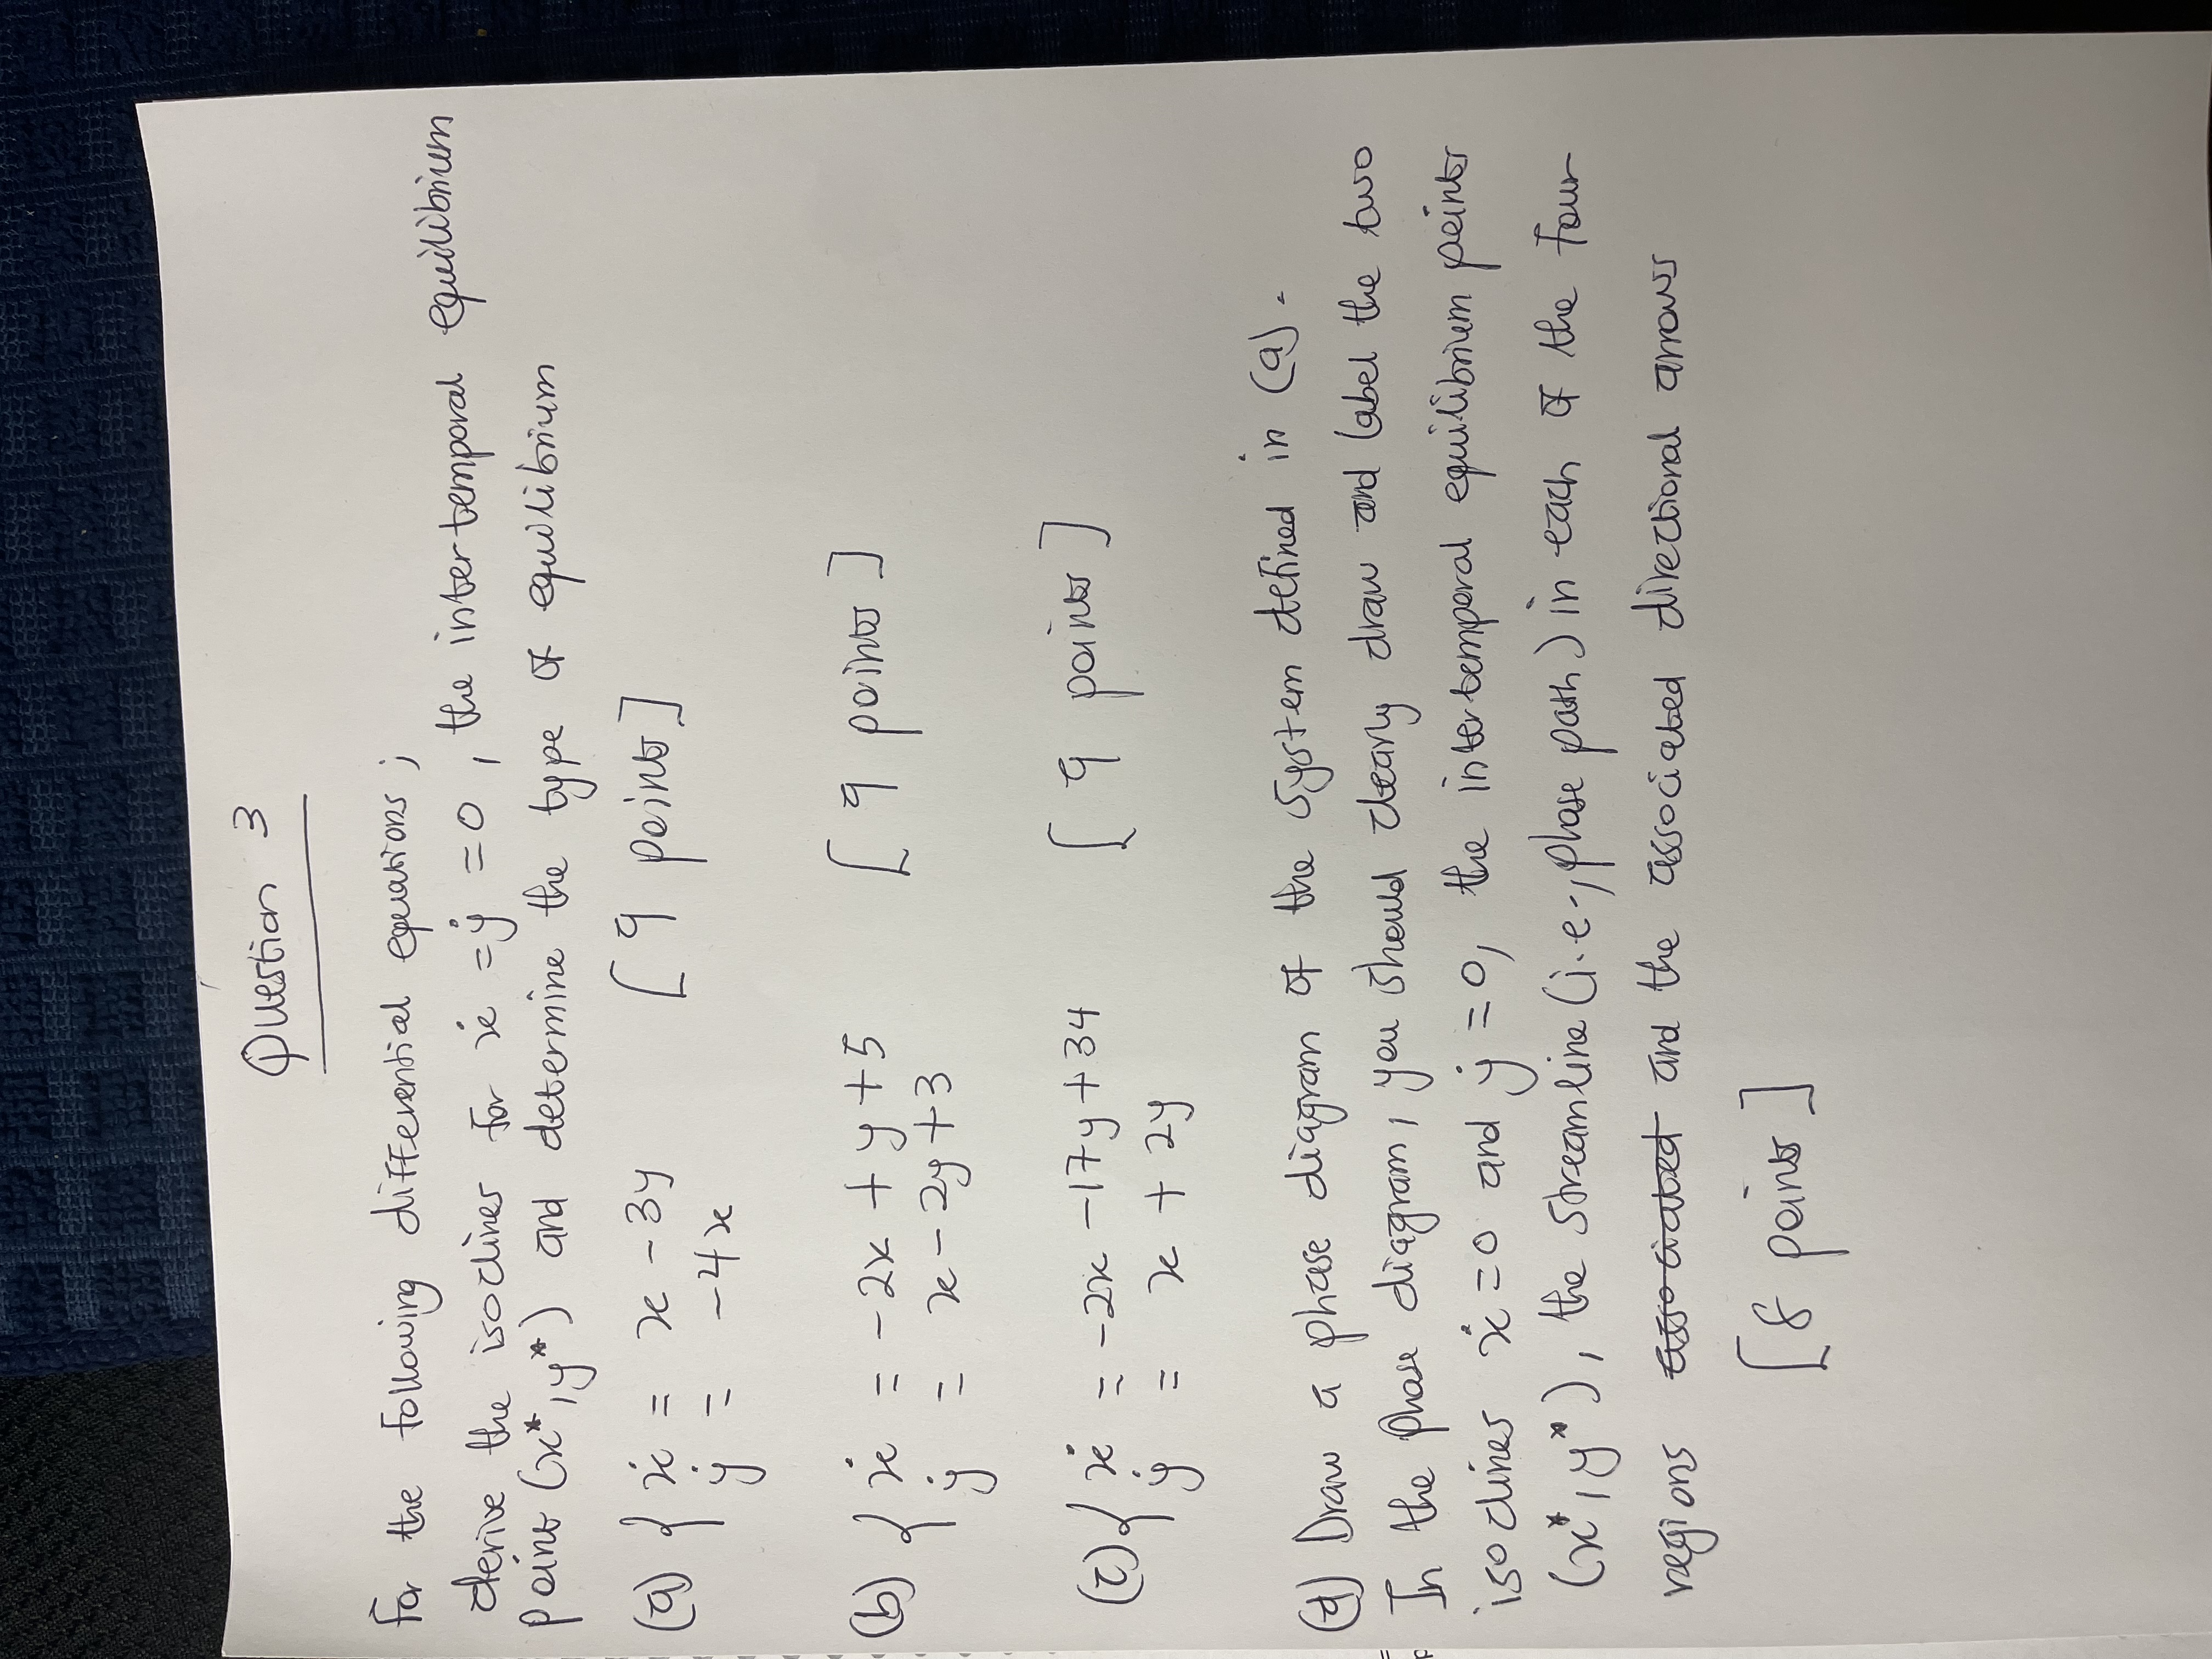 Question 3
For the following differential equations;
derive the isoclines for ẋ = ẏ = 0, the intertemporal equilibrium
point (x*, y*) and determine the type of equilibrium
(a) { ẋ = x - 3y [9 points]
ẏ = -4x
(b) { ẋ = -2x + y + 5 [9 points]
ẏ = x - 2y + 3
(c) { ẋ = -2x - 17y + 34 [9 points]
ẏ = x + 2y
(d) Draw a phase diagram of the system defined in (a).
In the phase diagram, you should clearly draw and label the two
isoclines ẋ = 0 and ẏ = 0, the intertemporal equilibrium points
(x*, y*), the streamline (i.e., phase path) in each of the four
regions associated and the associated directional arrows
[8 points]